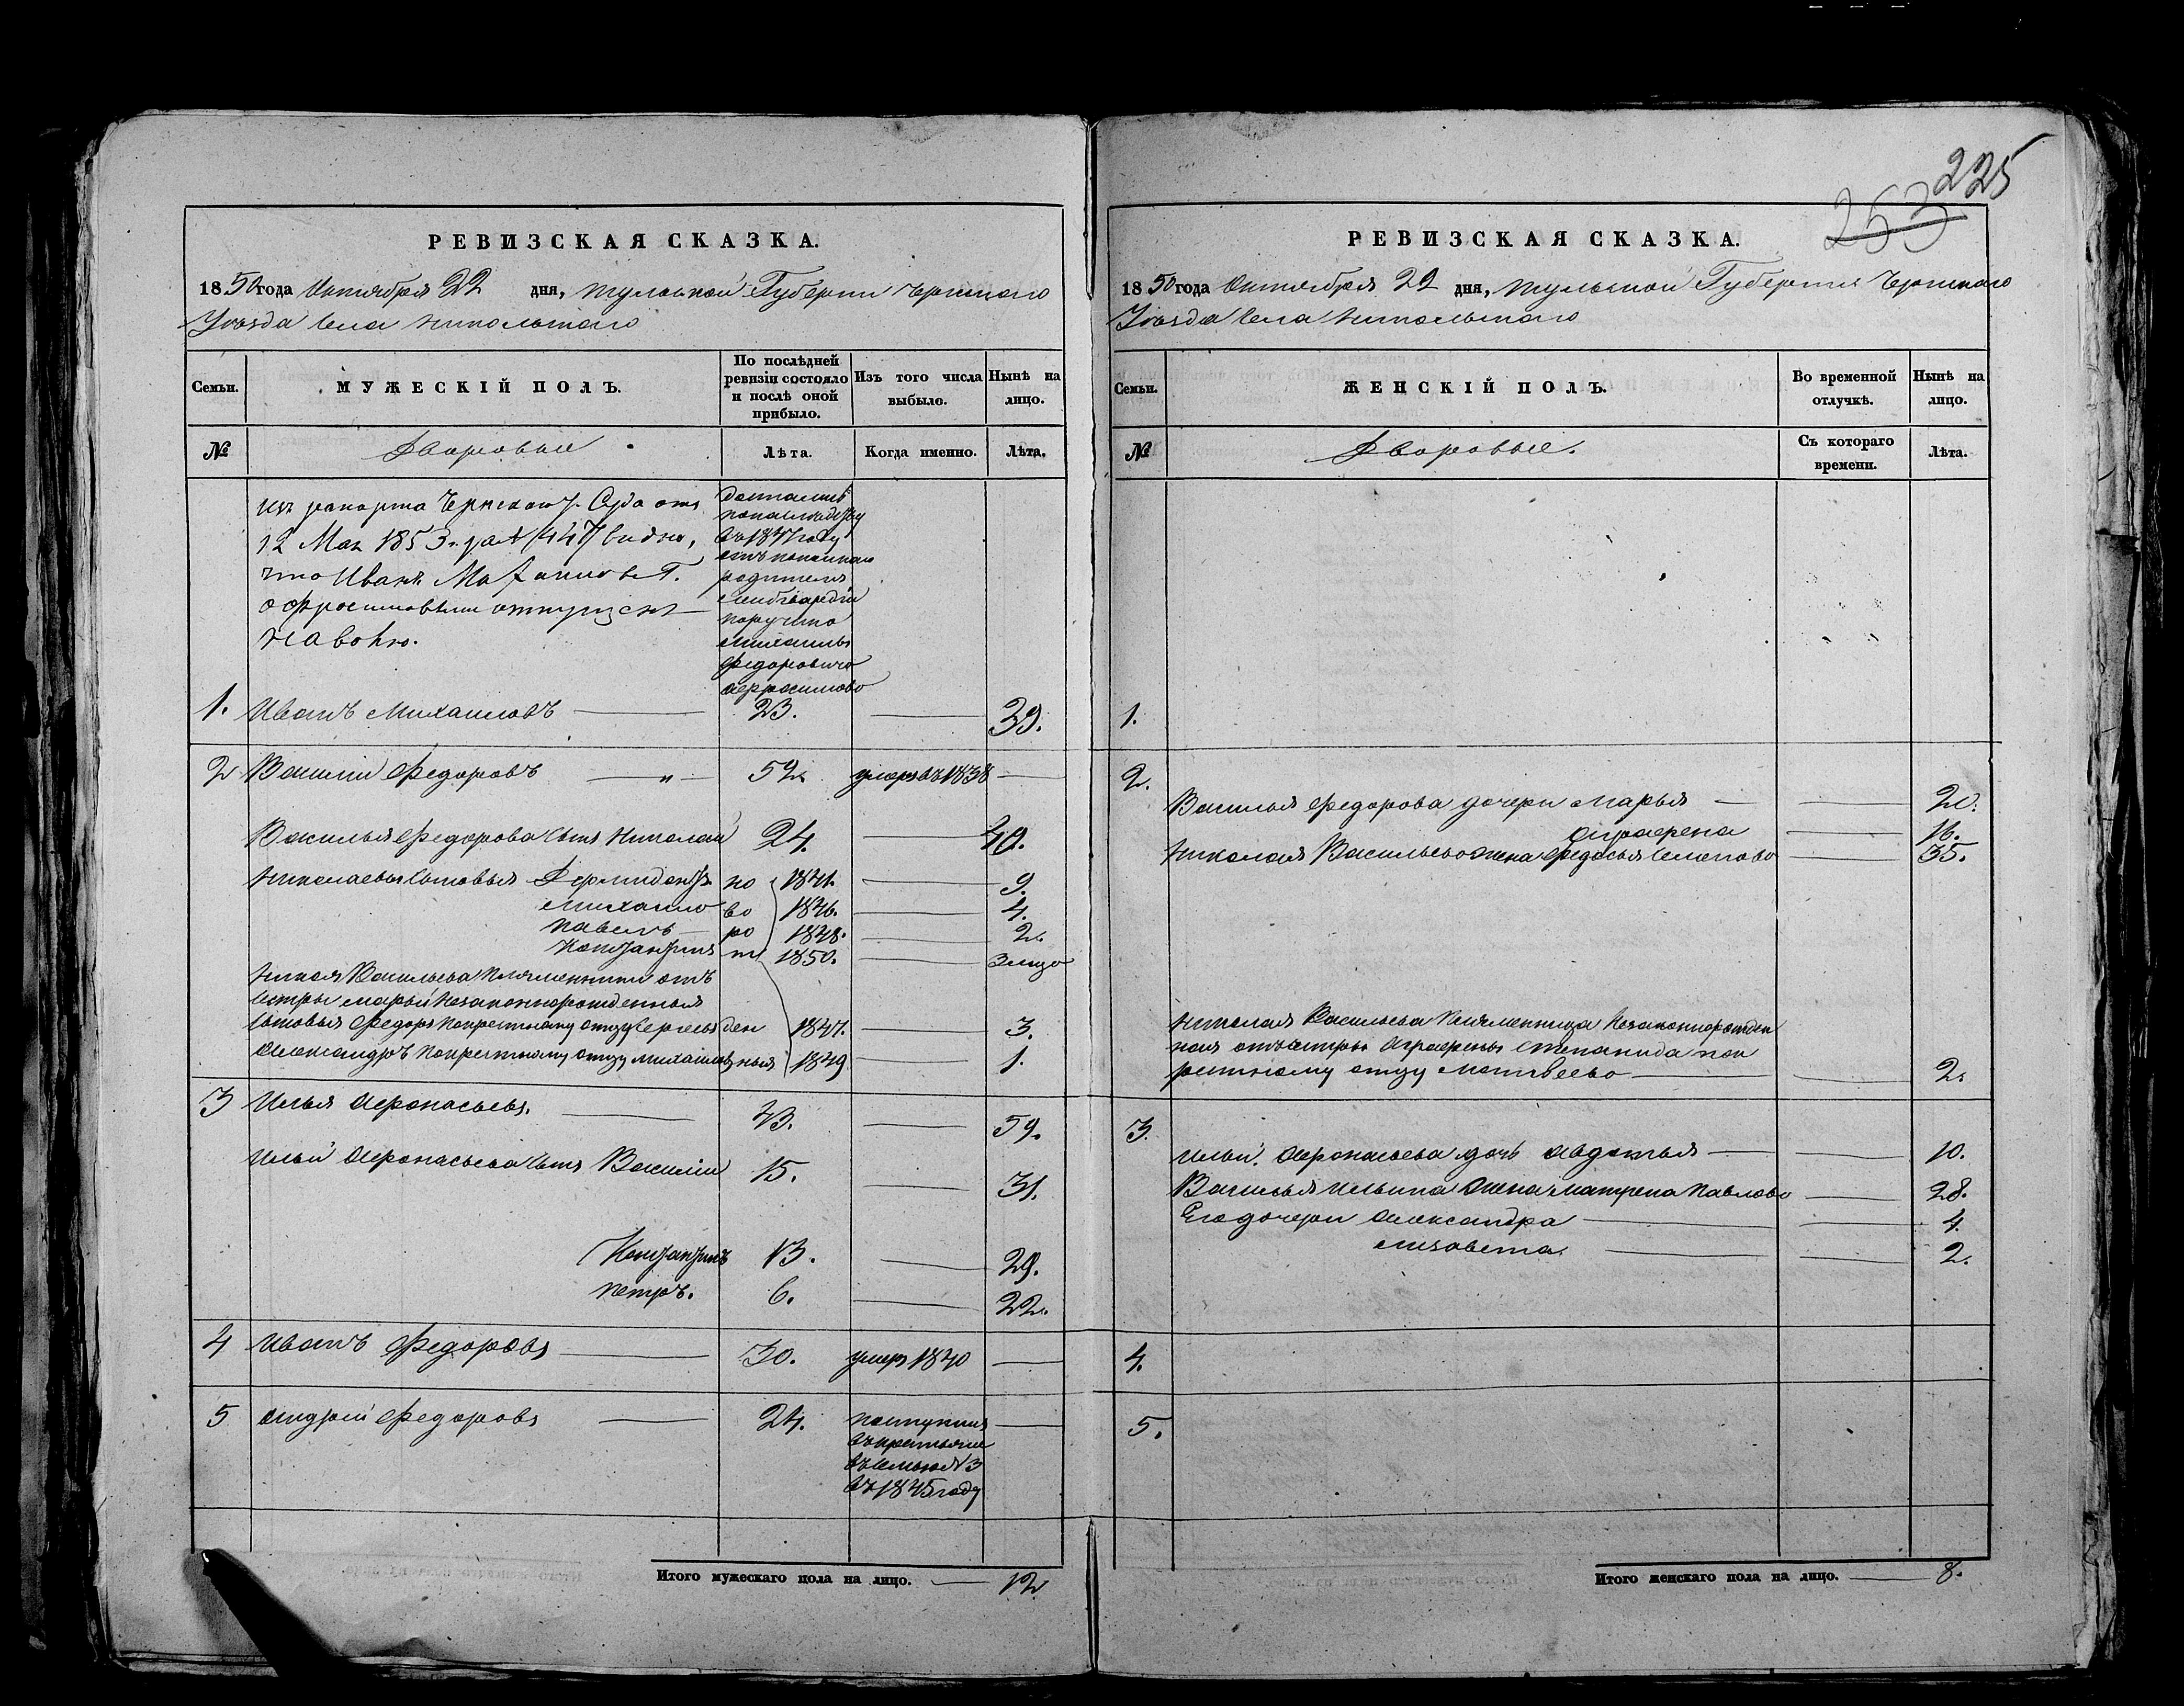 225
253
РЕВИЗСКАЯ СКАЗКА.
1850 года Октября 22 дня, Тульской Губерни Чернского
Уѣзда села Никольскаго
Семьи.
МУЖЕСКІЙ ПОЛЪ.
По послѣдней ревизіи состояло и послѣ оной прибыло.
Изъ того числа выбыло.
Нынѣ на лицо.
№
Дворовые
Лѣта.
Когда именно.
Лѣта.
изъ рапорта Чернскаго Суда отъ
12 Мая 1853 г. за № 1447 видно,
что Иванъ Михаиловъ Г.
Офросимовымъ отпущенъ
на волю.
Достались
по наследству
въ 1847 году
отъ покойнаго
родителя
Лейбгвардіи
Порутчика
Михаилы
Федоровича
Афросимова
1. Иванъ Михаиловъ 23. 39.
2 Василій Федоровъ 52 умеръ въ 1838
Василья Федорова сынъ Николай 24. 40.
Николаевы сыновья Дормидонтъ но 1841. 9.
Михаило во 1846. 4.
Павелъ ро 1848. 2.
Константинъ ж 1850.
Никол Васильева племянники отъ
сестры Марьи незаконнорожденныя
сыновья Федоръ по крестному отцу Сергеевъ ден 1847. 3.
Александръ по крестному отцу Михаиловъ ныя 1849 1.
3 Илья Афонасьевъ. 43. 59.
Ильи Афонасьева сынъ Василій 15. 31.
Константинъ 13. 29.
Петръ. 6. 22.
4 Иванъ Федоровъ 30. умеръ 1840
5 Андрей Федоровъ 24. поступилъ
въ крестьяне
въ семью № 3
въ 1845 году
Итого мужескаго пола на лицо. 12
РЕВИЗСКАЯ СКАЗКА.
1850 года Октября 22 дня, Тульской Губерния Чернского
Уѣзда села Никольскаго
Семьи.
ЖЕНСКІЙ ПОЛЪ.
Во временной отлучкѣ.
Нынѣ на лицо.
№
Дворовые.
Съ котораго времени.
Лѣта.
1.
2.
Василья Федорова дочери Марья 20.
Аграфена 16.
Николая Васильева жена Федосья Семенова 35.
Николая Васильева племянница незаконнорожден
ная отъ сестры Аграфены Степанида по к
рестному отцу Матвеева 2.
3.
Ильи Афонасьева дочь Авдотья 10.
Василья Ильина жена Матрена Павлова 28.
Его дочери Александра 4.
Лизавета. 2.
4.
5.
Итого женскаго пола на лицо. 8.